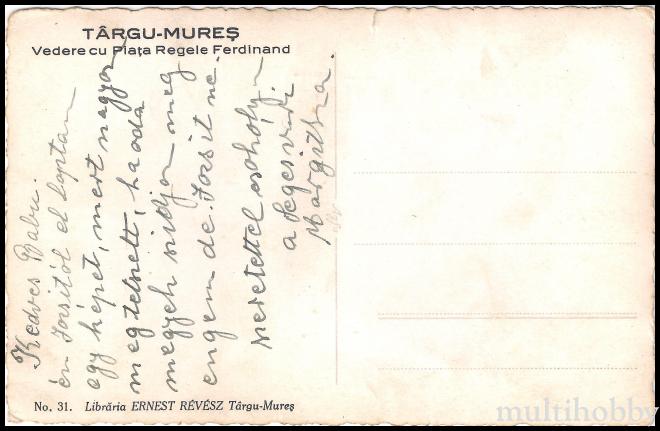 TÂRGU-MUREȘ
Vedere cu Piața Regele Ferdinand
Kedves Babu.
én Jozsitól el loptam
egy képet, mert nagyon
megtetszett, ha oda
megyek szidjon meg
engem de Jozsit ne.
szeretettel csókolja
a segesvári
Margitka.
No. 31. Librăria ERNEST RÉVÉSZ Târgu-Mureș
multihobby